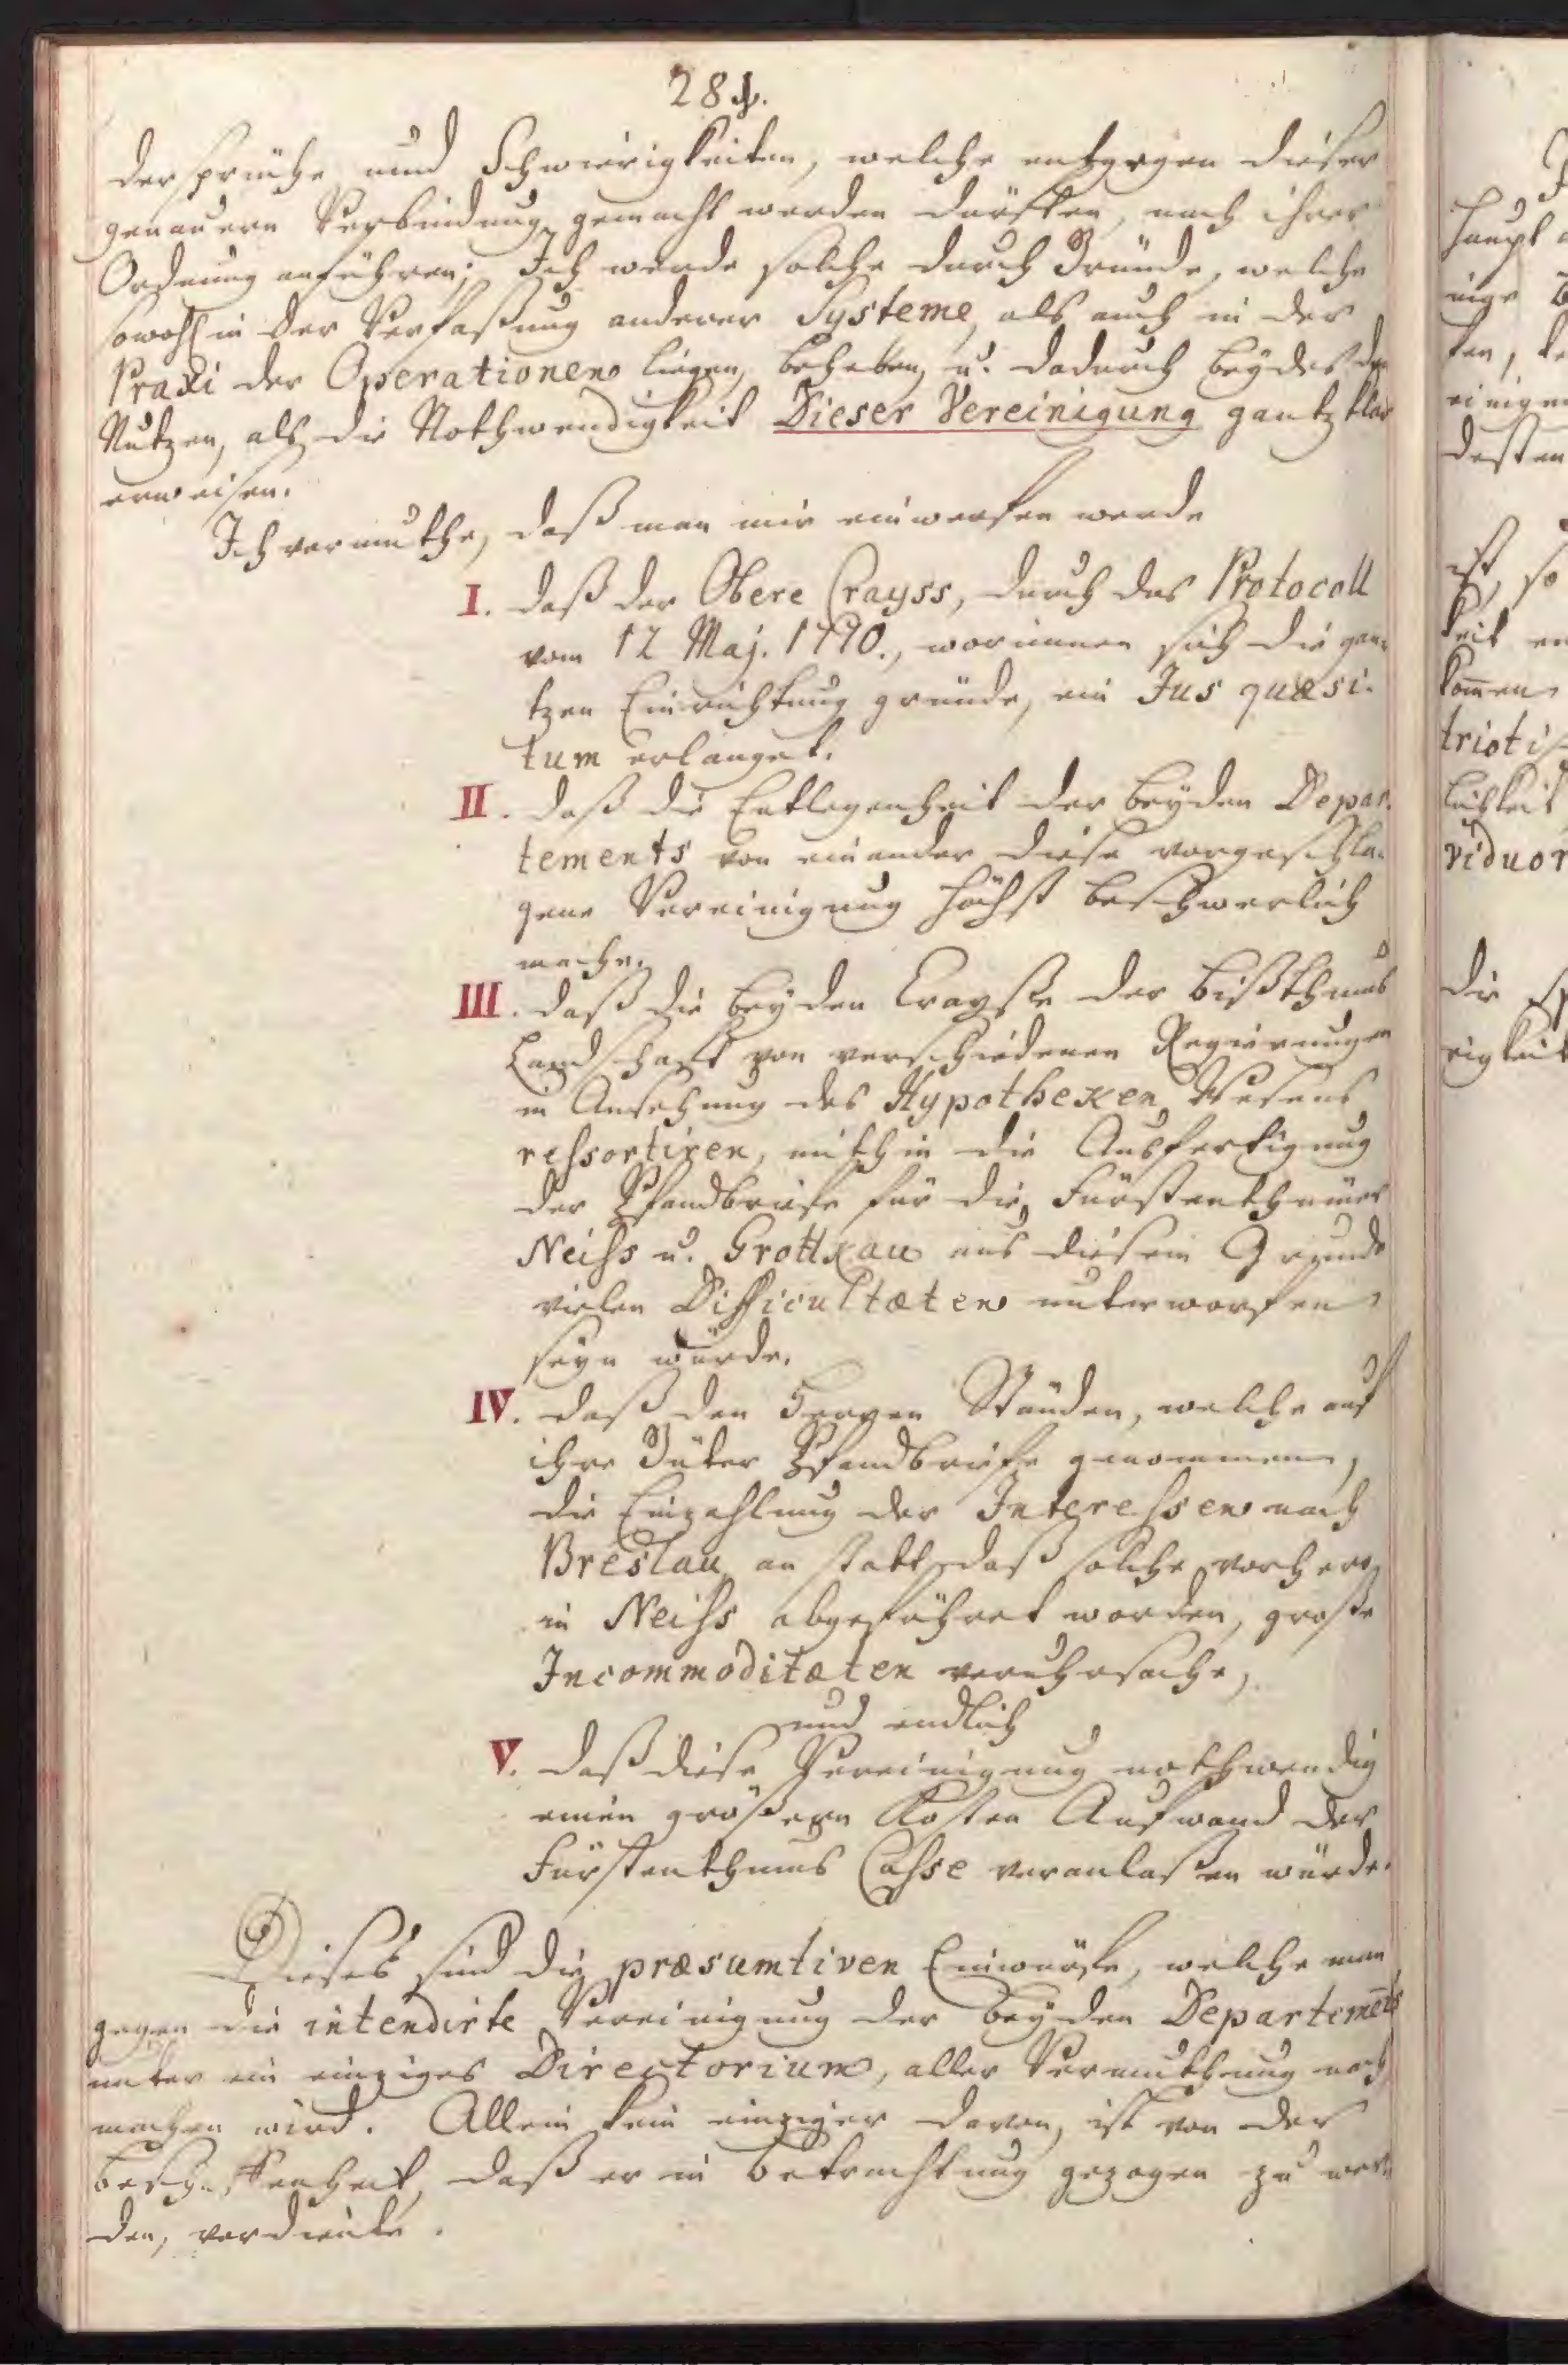 284.
dersprüche und Schwierigkeiten, welche entgegen dieser
genauern Verbindung gemacht werden dürften, nach ihrer
Ordnung anführen; Ich werde solche durch Gründe, welche
sowohl in der Verfaßung anderer Systeme, als auch in der
Praxi der Operationen liegen, beheben, u. dadurch beydes den
Nutzen, als die Nothwendigkeit Dieser Vereinigung gantz klar
erweisen.
Ich vermuthe, daß man mir einwerfen werde
I. daß der Obere Crayss, durch das Protocoll
vom 12 Maj. 1770., worinnen sich die gan-
tzen Einrichtung gründe, ein Jus quæsi-
tum erlanget.
II. daß die Entlegenheit der beyden Depar-
tements von einander diese vorgeschla-
gene Vereinigung höchst beschwerlich
mache.
III. daß die beyden Crayße der Bißthums
Landschaft von verschiedenen Regierungen
in Ansehung des Hypotheken Wesens
ressortiren, mithin die Ausfertigung
der Pfandbriefe für die Fürstenthümer
Neiss u. Grottkau aus diesem Grunde
vielen Difficultæten unterworfen
seyn würde.
IV. daß den Herren Ständen, welche auf
ihre Güter Pfandbriefe genommen,
die Einzahlung der Interessen nach
Breslau, an statt daß solche vorher
in Neiss abgeführet worden, große
Incommoditæten veruhrsache,
und endlich
V. daß diese Vereinigung nothwendig
einen größern Kosten Aufwand der
Fürstenthums Casse veranlaßen würde.
Dieses sind die præsumtiven Einwürfe, welche man
gegen die intendirte Vereinigung der beyden Departements
unter ein einziges Directorium, aller Vermuthung nach
machen wird. Allein kein einziger davon, ist von der
Beschaffenheit, daß er in Betrachtung gezogen zu wer-
den, verdiente.
haupt
nige
ten,
einigen
desten
ist, so
keit
kom̄en
trioti
lichkeit
viduor
die
rigkeit